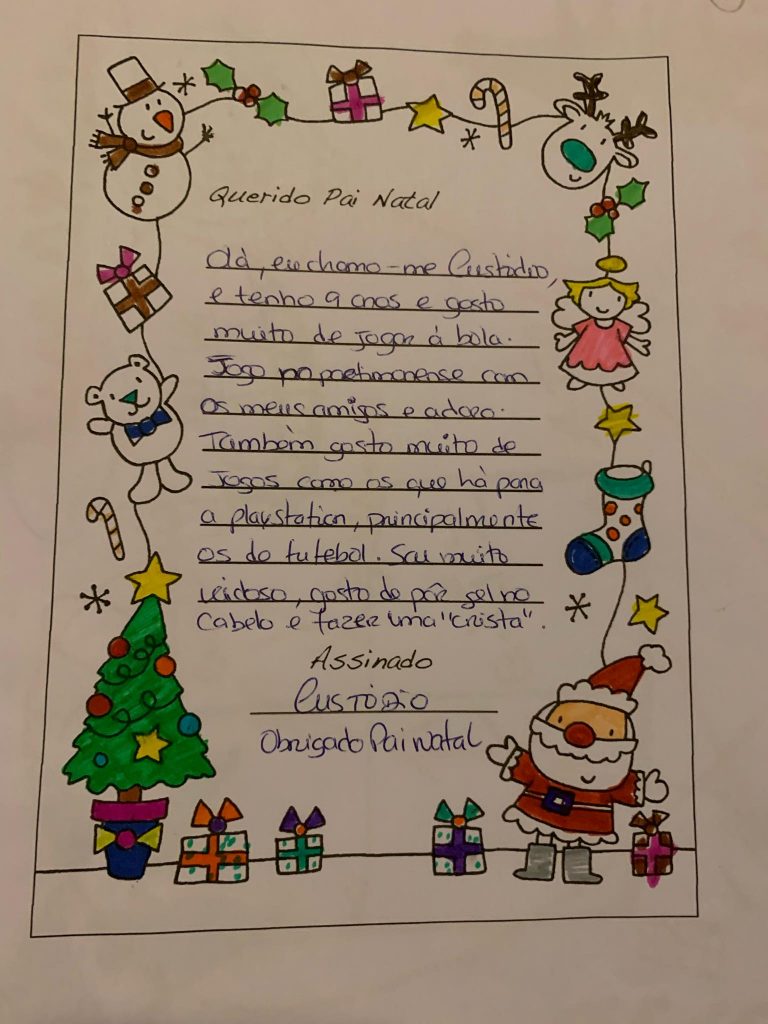 Querido Pai Natal
Olá, eu chamo-me Custódio,
e tenho 9 anos e gosto
muito de jogar à bola.
Jogo no portimonense com
os meus amigos e adoro.
Também gosto muito de
jogos como os que há para
a playstation, principalmente
os do futebol. Sou muito
vaidoso, gosto de pôr gel no
cabelo e fazer uma "crista".
Assinado
Custódio
Obrigado Pai Natal